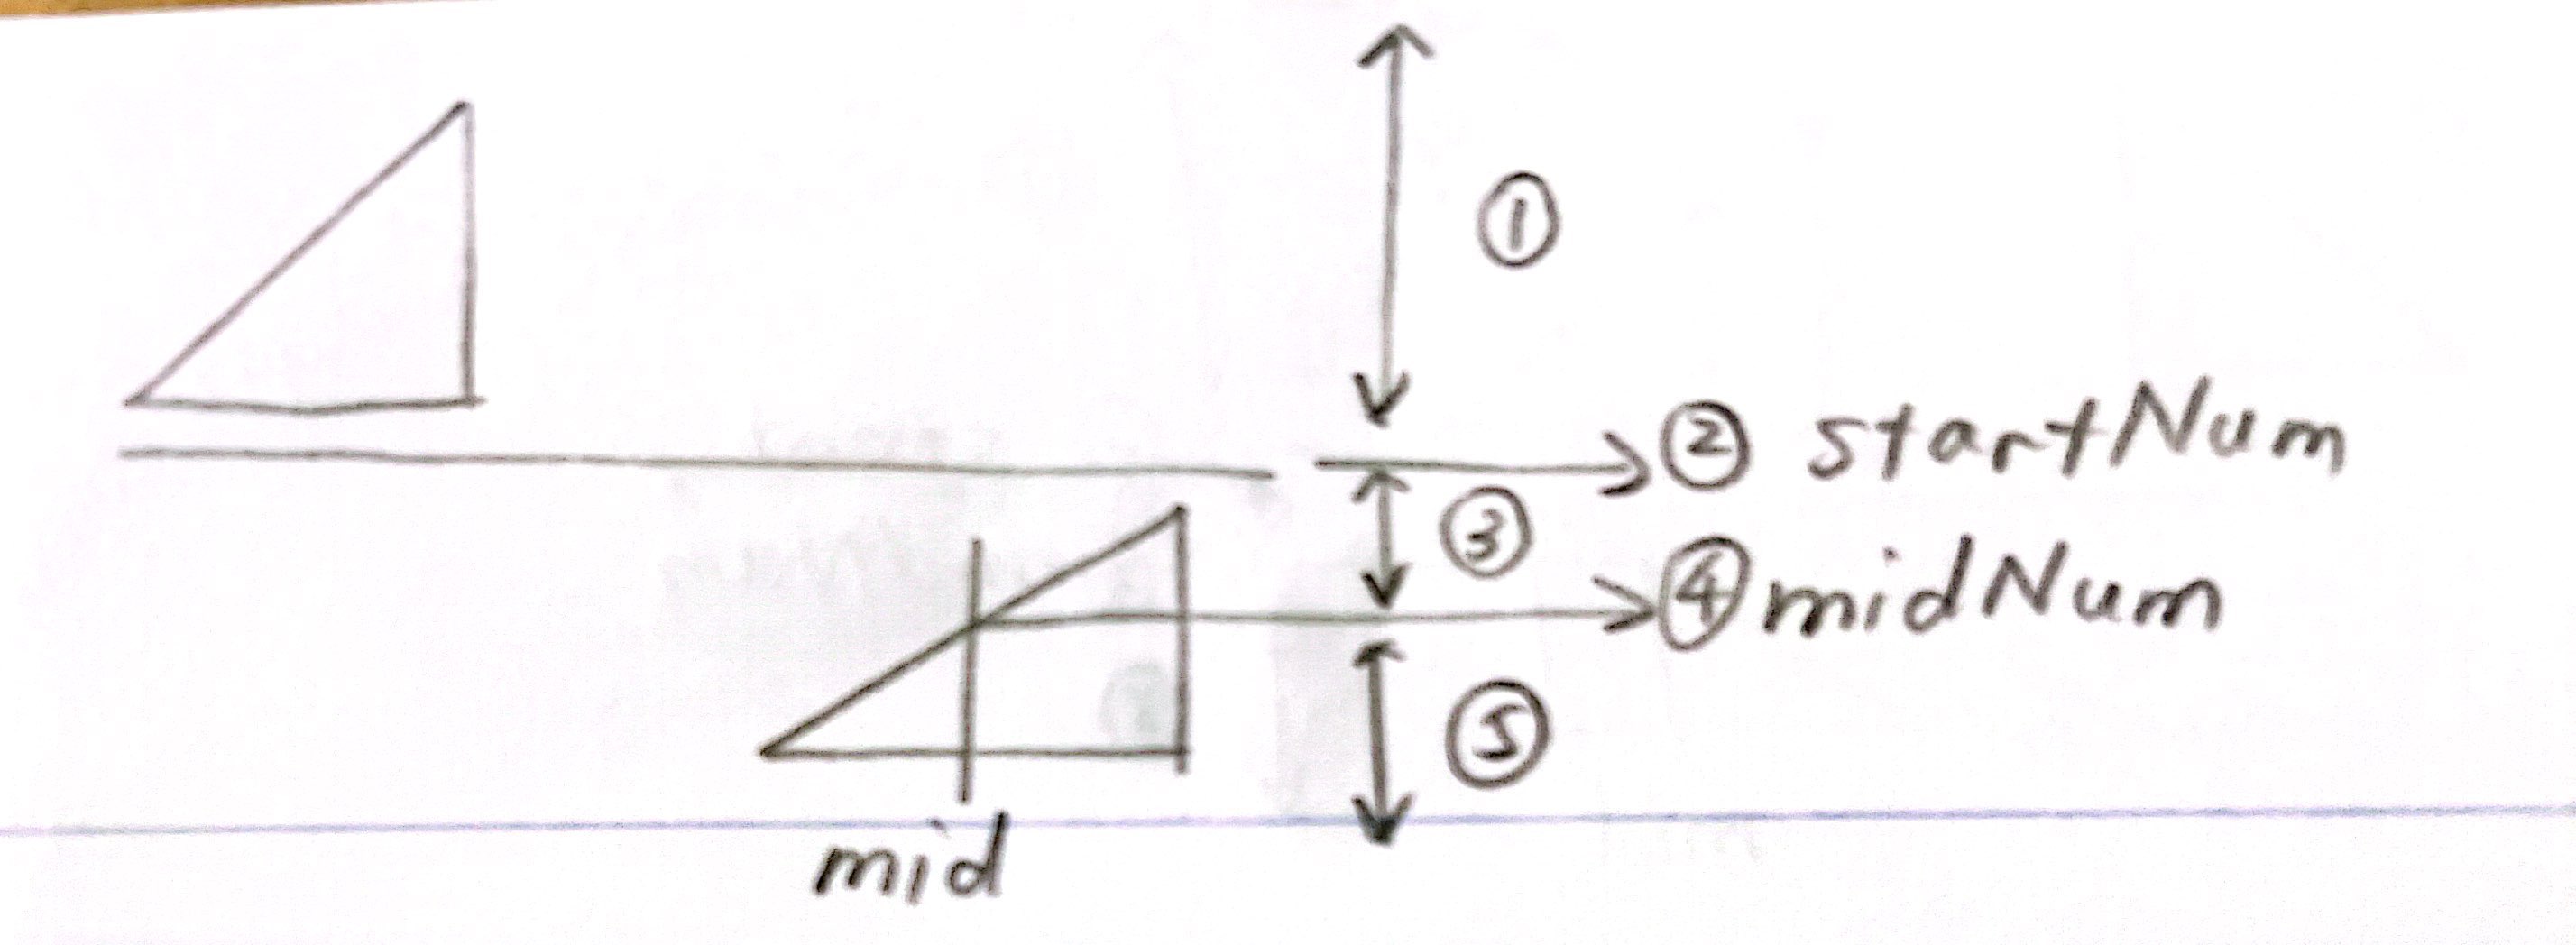 ①
② startNum
③
④ midNum
⑤
mid